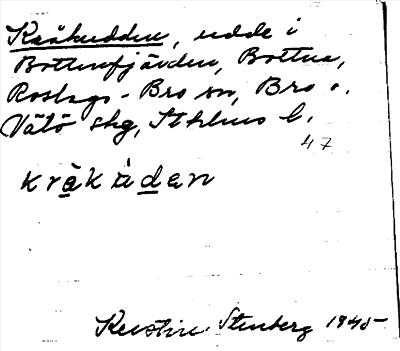 Kråkudden, udde i
Bottenfjärden, Bottna,
Roslags-Bro sn, Bro o.
Vätö skg, Sthlms l.
47
kràkùden
Kerstin Stenberg 1945